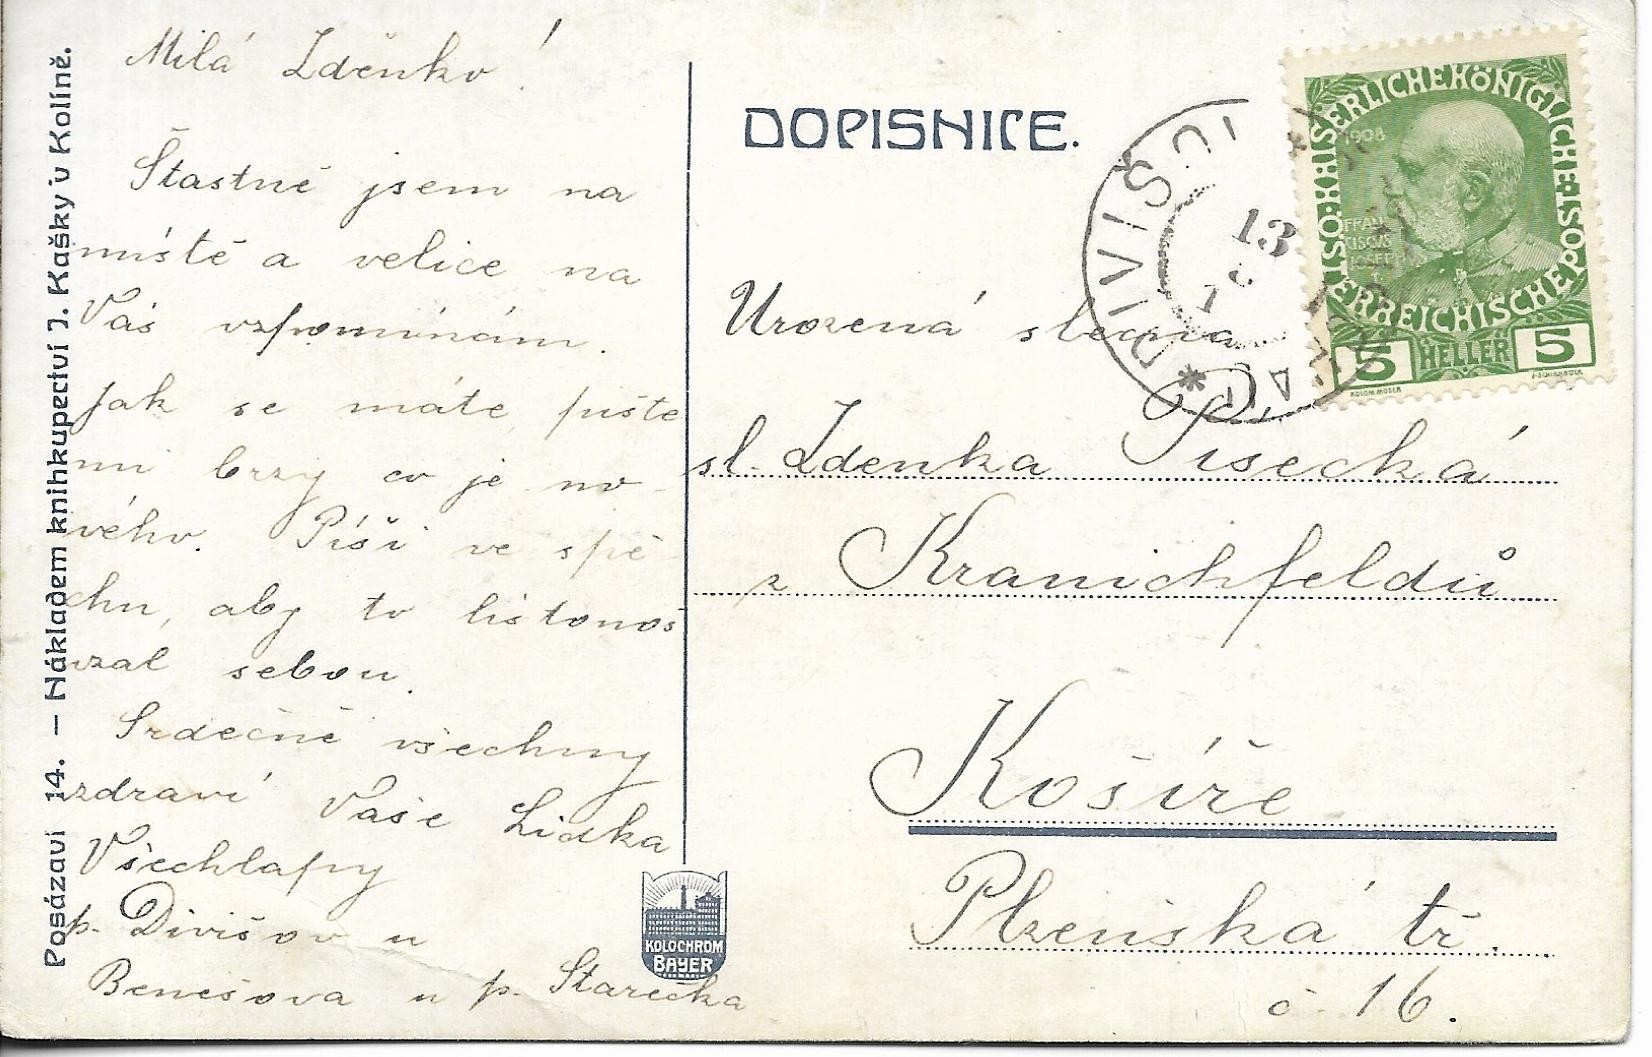 Milá Zdeňko!
Štastně jsem na
místě a velice na
Vás vzpomínám.
Jak se máte, pište
mi brzy co je no-
vého. Píši ve spě-
chu, aby to listonoš
vzal sebou.
Srdečně všechny
zdraví Vaše Lidka
Všechlapy
p. Divišov u
Benešova u p. Starečka
Posázaví 14. — Nákladem knihkupectví J. Kašky v Kolíně.
DOPISNICE.
KOLOCHROM
BAYER
DIVIŠO
13
1
KAISERLICHEKÖNIGLICHE
ÖSTERREICHISCHE POST
1908
FRAN
CISCUS
JOSEPHUS
5 HELLER 5
KOLOM.MOSER
F.SCHIRNBÖCK
Urozená slečna
sl. Zdenka Písecká
z Kranichfeldů
Košíře
Plzeňská tř.
č. 16.